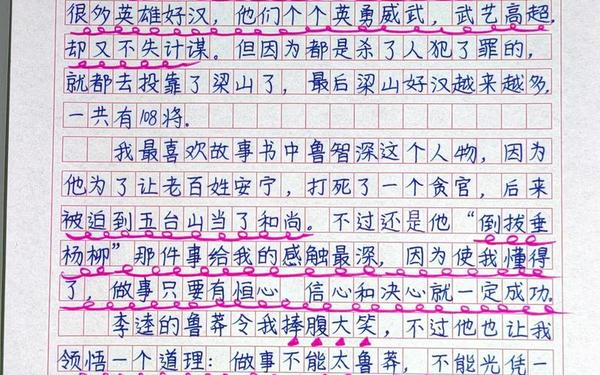 很多英雄好汉，他们个个英勇威武，武艺高超，
却又不失计谋。但因为都是杀了人犯了罪的，
就都去投靠了梁山了，最后梁山好汉越来越多，
一共有108将。
我最喜欢故事书中鲁智深这个人物，因为
他为了让老百姓安宁，打死了一个贪官，后来
被迫到五台山当了和尚。不过还是他“倒拔垂
杨柳”那件事给我的感触最深，因为使我懂得
了，做事只要有恒心 信心和决心就一定成功.
李逵的鲁莽令我捧腹大笑，不过他也让我
领悟一个道理：做事不能太鲁莽，不能光凭一